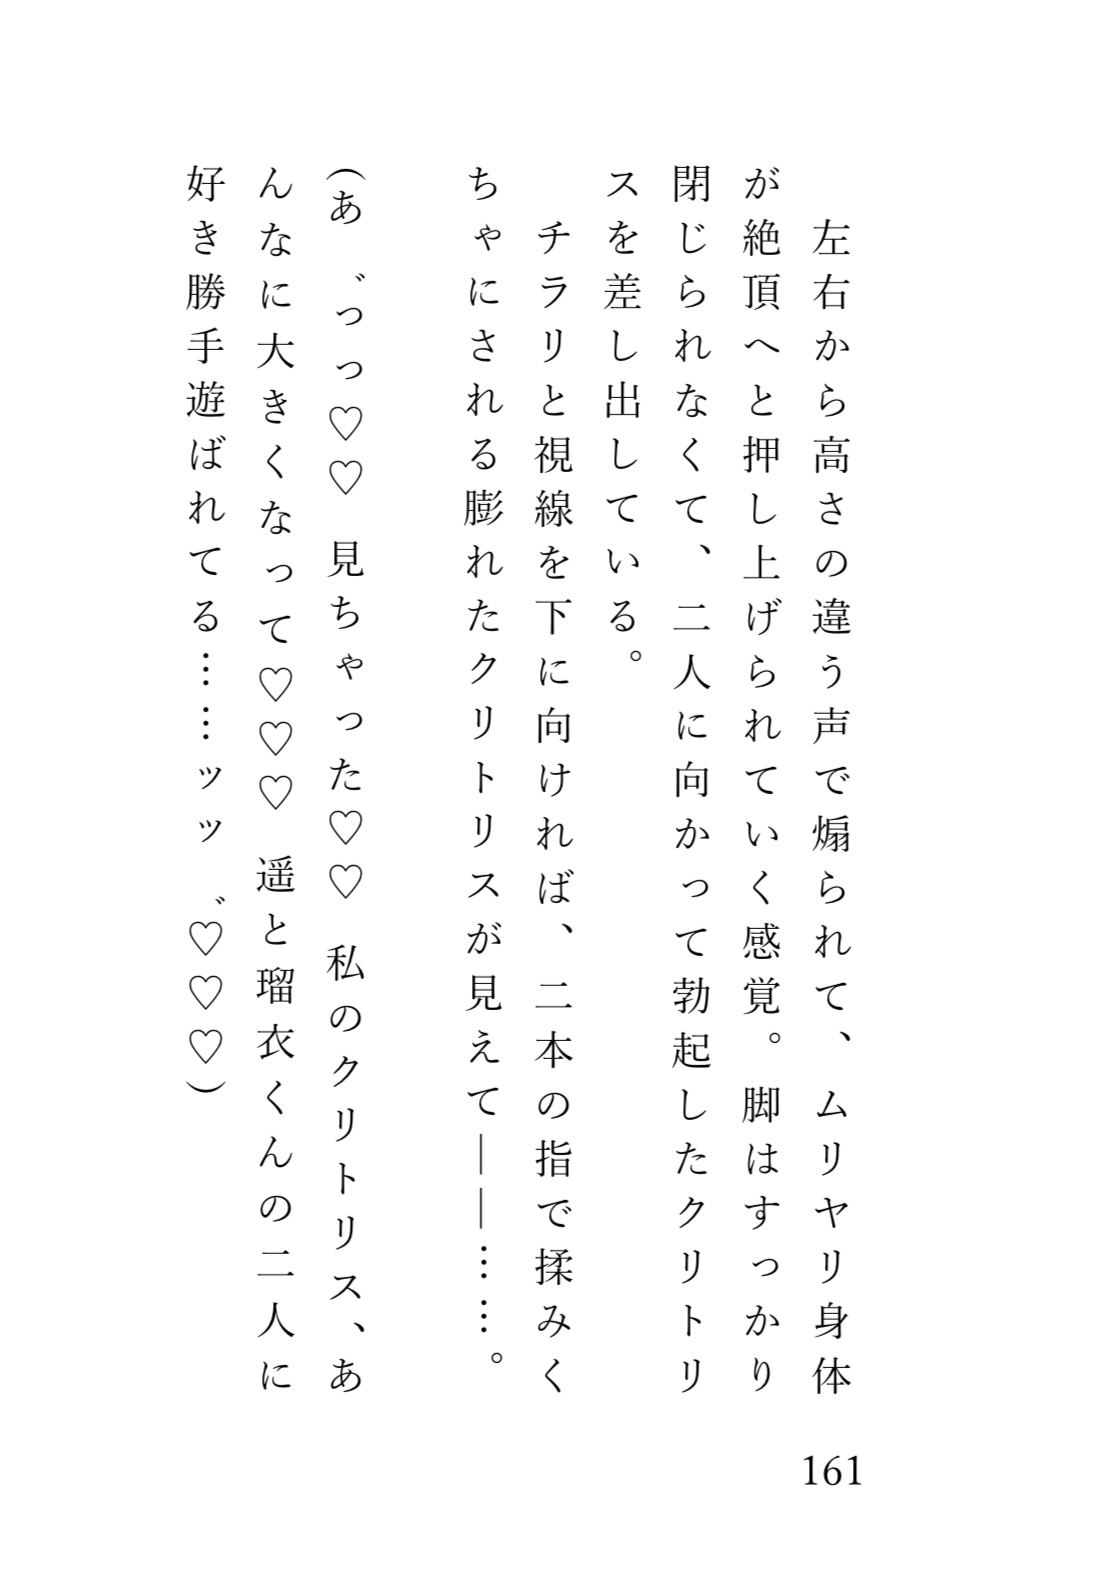 左右から高さの違う声で煽られて、ムリヤリ身体
が絶頂へと押し上げられていく感覚。脚はすっかり
閉じられなくて、二人に向かって勃起したクリトリ
スを差し出している。
　チラリと視線を下に向ければ、二本の指で揉みく
ちゃにされる膨れたクリトリスが見えて――……。
（あ゛っっ♡♡　見ちゃった♡♡　私のクリトリス、あ
んなに大きくなって♡♡♡　遥と瑠衣くんの二人に
好き勝手遊ばれてる……ッッ゛♡♡♡）
161